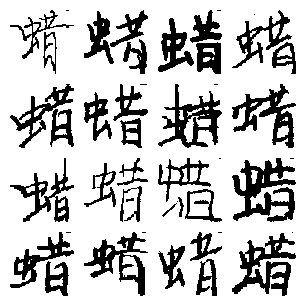 蜡蜡蜡蜡
蜡蜡蜡蜡
蜡蜡蜡蜡
蜡蜡蜡蜡